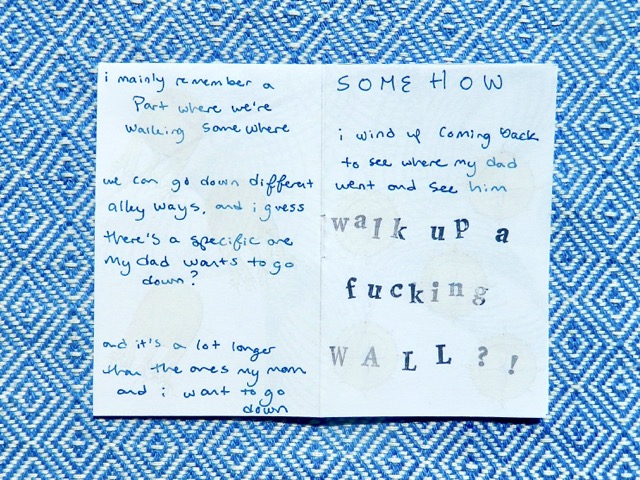 i mainly remember a
Part where we're
walking somewhere
we can go down different
alley ways, and i guess
there's a specific one
my dad wants to go
down?
and it's a lot longer
than the ones my mom
and i want to go
down
SOMEHOW
i wind up coming back
to see where my dad
went and see him
walk up a
fucking
WALL?!